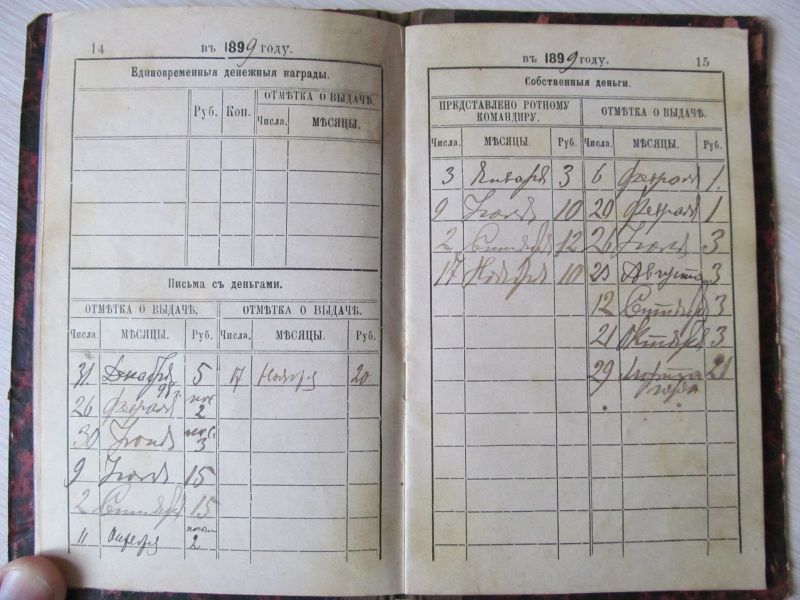 14
въ 1899 году.
Единовременныя денежныя награды.
Руб.
Коп.
ОТМѢТКА О ВЫДАЧѢ.
Числа.
МѢСЯЦЫ.
Письма съ деньгами.
ОТМѢТКА О ВЫДАЧѢ.
ОТМѢТКА О ВЫДАЧѢ.
Числа. МѢСЯЦЫ. Руб. Числа. МѢСЯЦЫ. Руб.
31 Декабря 98 г. 5 17 Ноября 20
26 Февраля 2
30 3
9 15
2 Сентября 15
11 2
въ 1899 году.
15
Собственныя деньги.
ПРЕДСТАВЛЕНО РОТНОМУ КОМАНДИРУ.
ОТМѢТКА О ВЫДАЧѢ.
Числа. МѢСЯЦЫ. Руб. Числа. МѢСЯЦЫ. Руб.
3 Января 3 6 Февраля 1.
9 10 20 Февраля 1
2 Сентября 12 26 3
17 Ноября 10 23 Августа 3
12 Сентября 3
21 Октября 3
29